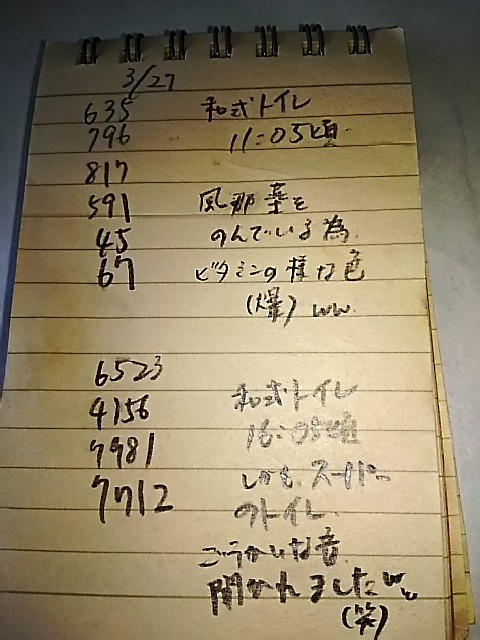 3/27
635 和式トイレ
796 11:05頃
817
591 風邪薬を
45 のんでいる為
67 ビタミンの様な色
(爆) ww
6523
4156 和式トイレ
7981 16:05頃
7712 しかも、スーパー
のトイレ.
ごうかいな音
聞かれましたww
(笑)